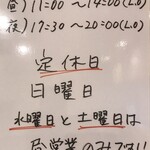 昼) 11:00 ~ 14:00 (L.O)
夜) 17:30 ~ 20:00 (L.O)
定休日
日曜日
水曜日と土曜日は
昼営業のみです